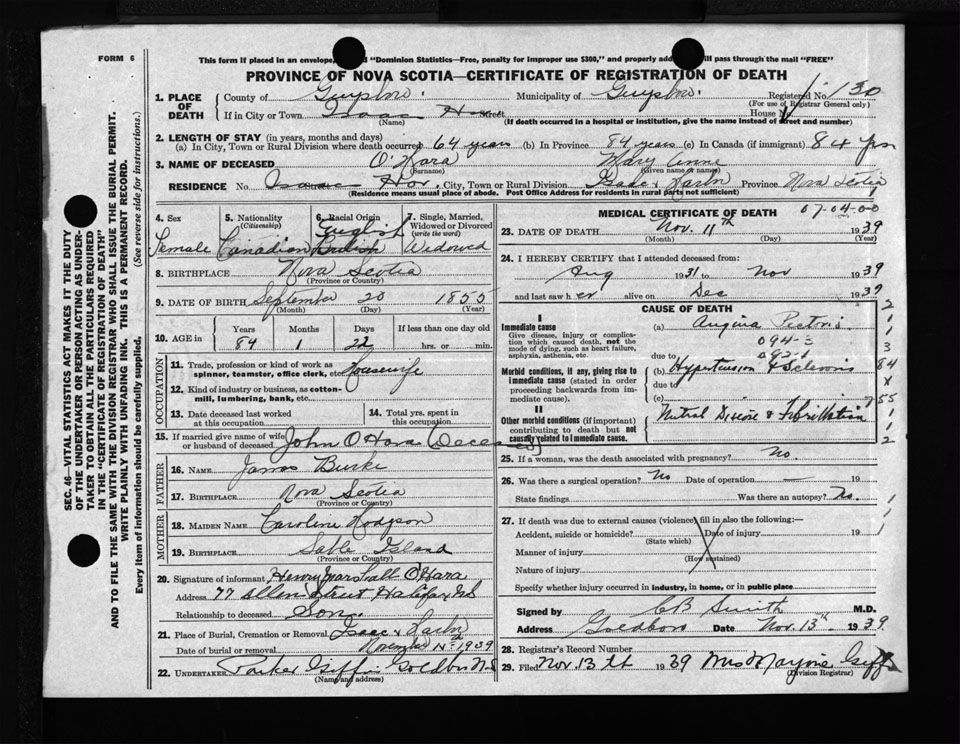 FORM 6
This form if placed in an envelope, "Dominion Statistics—Free, penalty for improper use $300," and properly ad will pass through the mail "FREE"
PROVINCE OF NOVA SCOTIA—CERTIFICATE OF REGISTRATION OF DEATH
1. PLACE OF DEATH
County of Guysboro. Municipality of Guysboro. Registered No. 130
(For use of Registrar General only)
If in City or Town Isaac H Street House N
(Name) (If death occurred in a hospital or institution, give the name instead of street and number)
2. LENGTH OF STAY (in years, months and days)
(a) In City, Town or Rural Division where death occurred 64 years (b) In Province 84 years (c) In Canada (if immigrant) 84 yrs
3. NAME OF DECEASED O'Hara Mary Anne
(Surname) (Given name or names)
RESIDENCE No Isaacs Hor, City, Town or Rural Division Isaac's Harbr Province Nova Scotia
(Residence means usual place of abode. Post Office Address for residents in rural parts not sufficient)
4. Sex Female
5. Nationality (Citizenship) Canadian
6. Racial Origin English British
7. Single, Married, Widowed or Divorced (write the word) Widowed
8. BIRTHPLACE Nova Scotia
(Province or Country)
9. DATE OF BIRTH September 20 1855
(Month) (Day) (Year)
10. AGE in Years Months Days If less than one day old
84 1 22 hrs. or min.
OCCUPATION
11. Trade, profession or kind of work as spinner, teamster, office clerk, etc. Housewife
12. Kind of industry or business, as cotton-mill, lumbering, bank, etc.
13. Date deceased last worked at this occupation
14. Total yrs. spent in this occupation
15. If married give name of wife or husband of deceased John O'Hara (Deceased)
FATHER
16. NAME James Burke
17. BIRTHPLACE Nova Scotia
MOTHER
18. MAIDEN NAME Caroline Hodgson
19. BIRTHPLACE Sable Island
(Province or Country)
20. Signature of informant Henry Marshall O'Hara
Address 77 Allen Street Halifax N.S
Relationship to deceased Son.
21. Place of Burial, Cremation or Removal Isaac's Harbr
Date of burial or removal November 14th 1939
22. UNDERTAKER Parker Giffin Goldboro N.S
(Name and address)
MEDICAL CERTIFICATE OF DEATH 07-04-00
23. DATE OF DEATH Nov. 11th 1939
(Month) (Day) (Year)
24. I HEREBY CERTIFY that I attended deceased from:
Aug 1931 to Nov 1939
and last saw her alive on Dec 1939
CAUSE OF DEATH
I
Immediate cause
Give disease, injury or complication which caused death, not the mode of dying, such as heart failure, asphyxia, asthenia, etc.
(a) Angina Pectoris
094-3
092-1
due to
Morbid conditions, if any, giving rise to immediate cause (stated in order proceeding backwards from immediate cause).
(b) Hypertension & Sclerosis
due to
(c)
II
Other morbid conditions (if important) contributing to death but not causally related to immediate cause.
Mitral Disease & Fibrillation
2
1
1
3
84
x
55
1
1
2
25. If a woman, was the death associated with pregnancy? No.
26. Was there a surgical operation? No Date of operation — 19
State findings Was there an autopsy? No.
27. If death was due to external causes (violence) fill in also the following:—
Accident, suicide or homicide? Date of injury 19
(State which)
Manner of injury
(How sustained)
Nature of injury
Specify whether injury occurred in industry, in home, or in public place
Signed by CB Smith M.D.
Address Goldboro Date Nov. 13th 1939
28. Registrar's Record Number
29. Filed Nov. 13th 1939 Mrs Marjorie Giffin
(Division Registrar)
SEC. 46—VITAL STATISTICS ACT MAKES IT THE DUTY
OF THE UNDERTAKER OR PERSON ACTING AS UNDER-
TAKER TO OBTAIN ALL THE PARTICULARS REQUIRED
IN THE "CERTIFICATE OF REGISTRATION OF DEATH"
AND TO FILE THE SAME WITH THE DIVISION REGISTRAR WHO SHALL ISSUE THE BURIAL PERMIT.
WRITE PLAINLY WITH UNFADING INK. THIS IS A PERMANENT RECORD.
Every item of information should be carefully supplied. (See reverse side for instructions.)